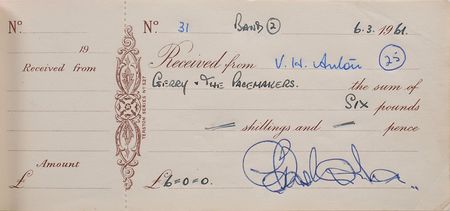 No.
19
Received from
Amount
£
TERSTON SERIES No 527
No. 31 BAND 2 6.3.1961.
Received from V. H. Antón 25
GERRY & THE PACEMAKERS. the sum of
SIX pounds
— shillings and — pence
£6=0=0.